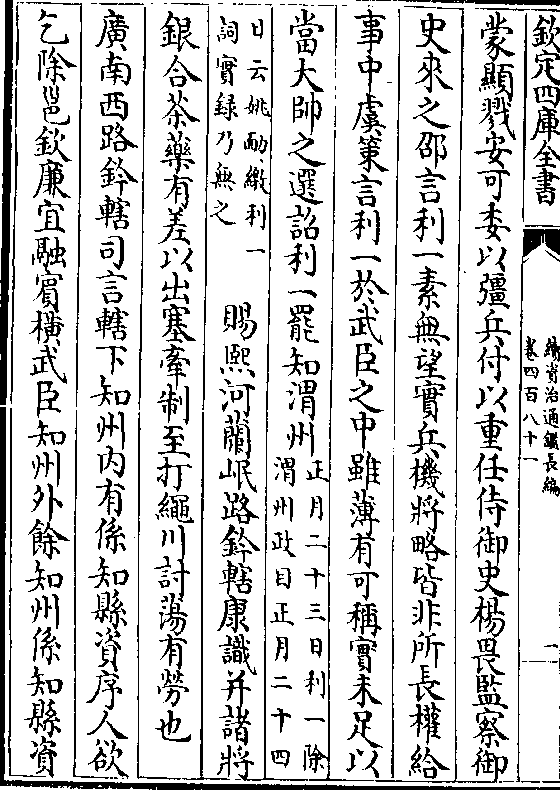 欽定四庫全書
續資治通鑑長編
卷四百八十一
一
蒙顯戮安可委以彊兵付以重任侍御史楊畏監察御
史來之邵言利一素無望實兵機將略皆非所長權給
事中虞策言利一於武臣之中雖薄有可稱實未足以
當大帥之選詔利一罷知渭州
正月二十三日利一除
渭州政目正月二十四
日云姚勔繳利一
詞實録乃無之
賜熙河蘭岷路鈐轄康識并諸將
銀合茶藥有差以出塞牽制至打繩川討蕩有勞也
廣南西路鈐轄司言轄下知州内有係知縣資序人欲
乞除邕欽廉宜融賓横武臣知州外餘知州係知縣資